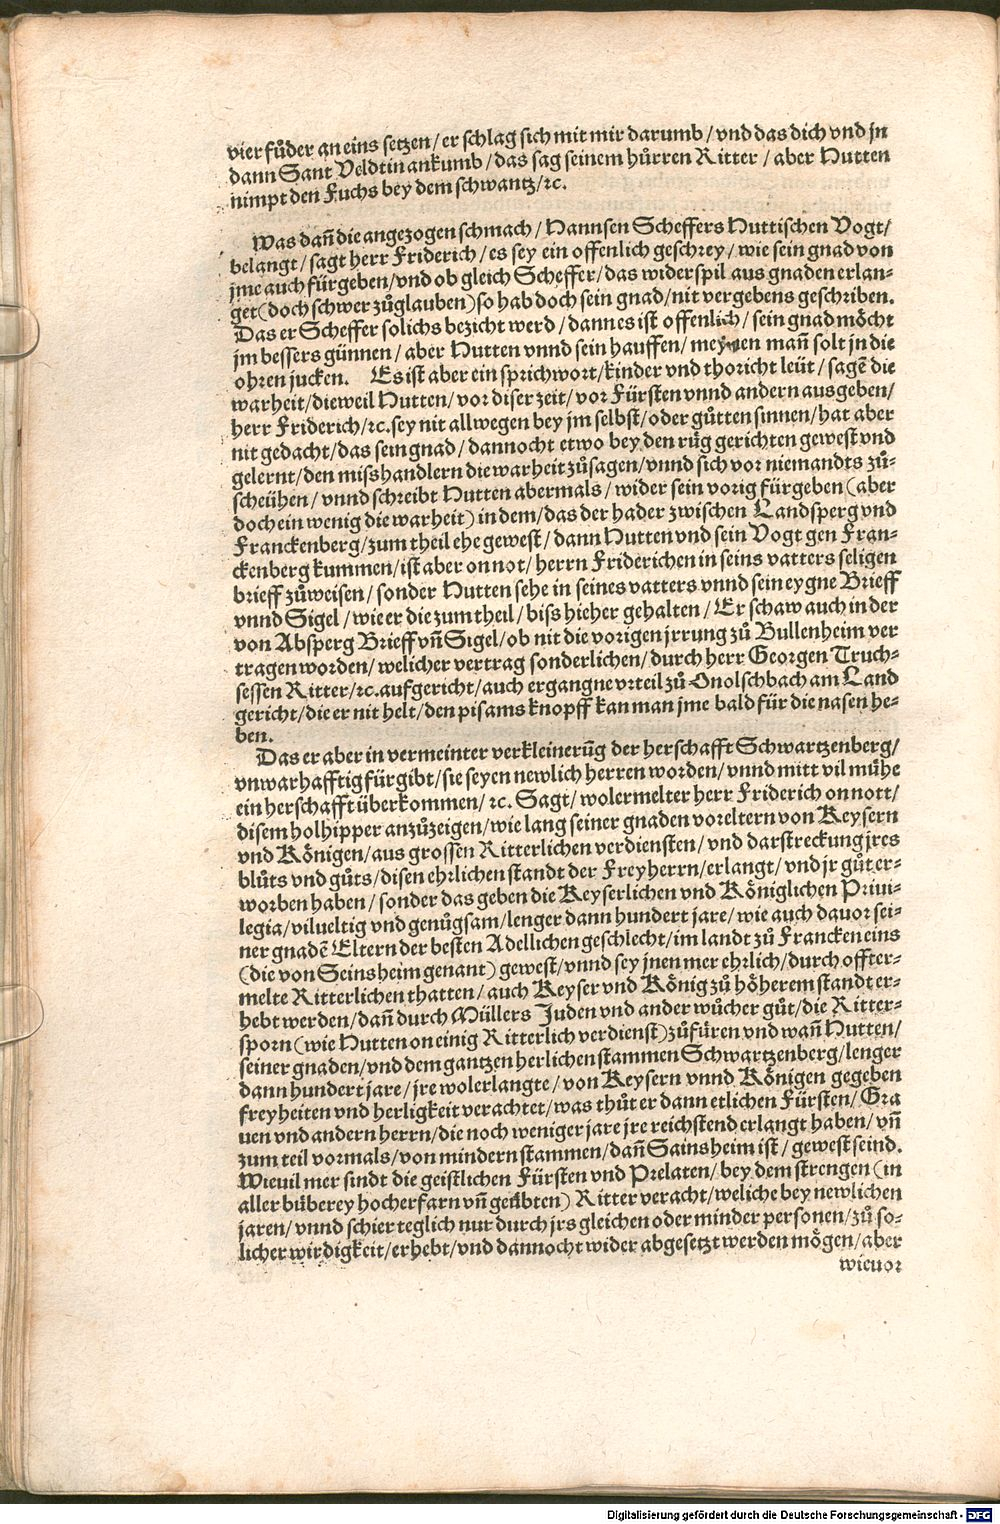 vier fůder an eins setzen/er schlag sich mit mir darumb/vnd das dich vnd jn
dann Sant Veldtin ankumb/das sag seinem hůrren Ritter/aber Hutten
nimpt den Fuchs bey dem schwantz/ꝛc.
Was dañ die angezogen schmach/Hannsen Scheffers Huttischen Vogt/
belangt/sagt herr Friderich/es sey ein offenlich geschrey/wie sein gnad von
jme auch fürgeben/vnd ob gleich Scheffer/das widerspil aus gnaden erlan-
get(doch schwer zůglauben)so hab doch sein gnad/nit vergebens geschriben.
Das er Scheffer solichs bezicht werd/dann es ist offenlich/sein gnad möcht
jm bessers günnen/aber Hutten vnnd sein hauffen/meynen mañ solt jn die
ohren jucken. Es ist aber ein sprichwort/kinder vnd thoricht leüt/sagẽ die
warheit/dieweil Hutten/vor diser zeit/vor Fürsten vnnd andern ausgeben/
herr Friderich/ꝛc.sey nit allwegen bey jm selbst/oder gůtten sinnen/hat aber
nit gedacht/das sein gnad/dannocht etwo bey den růg gerichten gewest vnd
gelernt/den misshandlern die warheit zůsagen/vnnd sich vor niemandts zů-
scheühen/vnnd schreibt Hutten abermals/wider sein vorig fürgeben(aber
doch ein wenig die warheit)in dem/das der hader zwischen Landsperg vnd
Franckenberg/zum theil ehe gewest/dann Hutten vnd sein Vogt gen Fran-
ckenberg kummen/ist aber on not/herrn Friderichen in seins vatters seligen
brieff zůweisen/sonder Hutten sehe in seines vatters vnnd sein eygne Brieff
vnnd Sigel/wie er die zum theil/biss hieher gehalten/Er schaw auch in der
von Absperg Brieff vñ Sigel/ob nit die vorigen jrrung zů Bullenheim ver
tragen worden/welicher vertrag sonderlichen/durch herr Georgen Truch-
sessen Ritter/ꝛc.aufgericht/auch ergangne vrteil zů Onolschbach am Land
gericht/die er nit helt/den pisams knopff kan man jme bald für die nasen he-
ben.
Das er aber in vermeinter verkleinerũg der herschafft Schwartzenberg/
vnwarhafftig fürgibt/sie seyen newlich herren worden/vnnd mitt vil mühe
ein herschafft überkommen/ꝛc. Sagt/wolermelter herr Friderich on nott/
disem holhipper anzůzeigen/wie lang seiner gnaden voreltern von Keysern
vnd Königen/aus grossen Ritterlichen verdiensten/vnd darstreckung jres
blůts vnd gůts/disen ehrlichen standt der Freyherrn/erlangt/vnd jr gůt er-
worben haben/sonder das geben die Keyserlichen vnd Königlichen Priui-
legia/vilueltig vnd genůgsam/lenger dann hundert jare/wie auch dauor sei-
ner gnadẽ Eltern der besten Adellichen geschlecht/im landt zů Francken eins
(die von Seinsheim genant) gewest/vnnd sey jnen mer ehrlich/durch offter-
melte Ritterlichen thatten/auch Keyser vnd König zů höherem standt er-
hebt werden/dañ durch Müllers Juden vnd ander wůcher gůt/die Ritter-
sporn(wie Hutten on einig Ritterlich verdienst)zůfüren vnd wañ Hutten/
seiner gnaden/vnd dem gantzen herlichen stammen Schwartzenberg/lenger
dann hundert jare/jre wolerlangte/von Keysern vnnd Königen gegeben
freyheiten vnd herligkeit verachtet/was thůt er dann etlichen Fürsten/Gra
uen vnd andern herrn/die noch weniger jare jre reichstend erlangt haben/vñ
zum teil vormals/von mindern stammen/dañ Sainsheim ist/gewest seind.
Wieuil mer sindt die geistlichen Fürsten vnd Prelaten/bey dem strengen(in
aller büberey hocherfarn vñ geübten) Ritter veracht/weliche bey newlichen
jaren/vnnd schier teglich nur durch jrs gleichen oder minder personen/zů so-
licher wirdigkeit/erhebt/vnd dannocht wider abgesetzt werden mögen/aber
wieuor
Digitalisierung gefördert durch die Deutsche Forschungsgemeinschaft - DFG